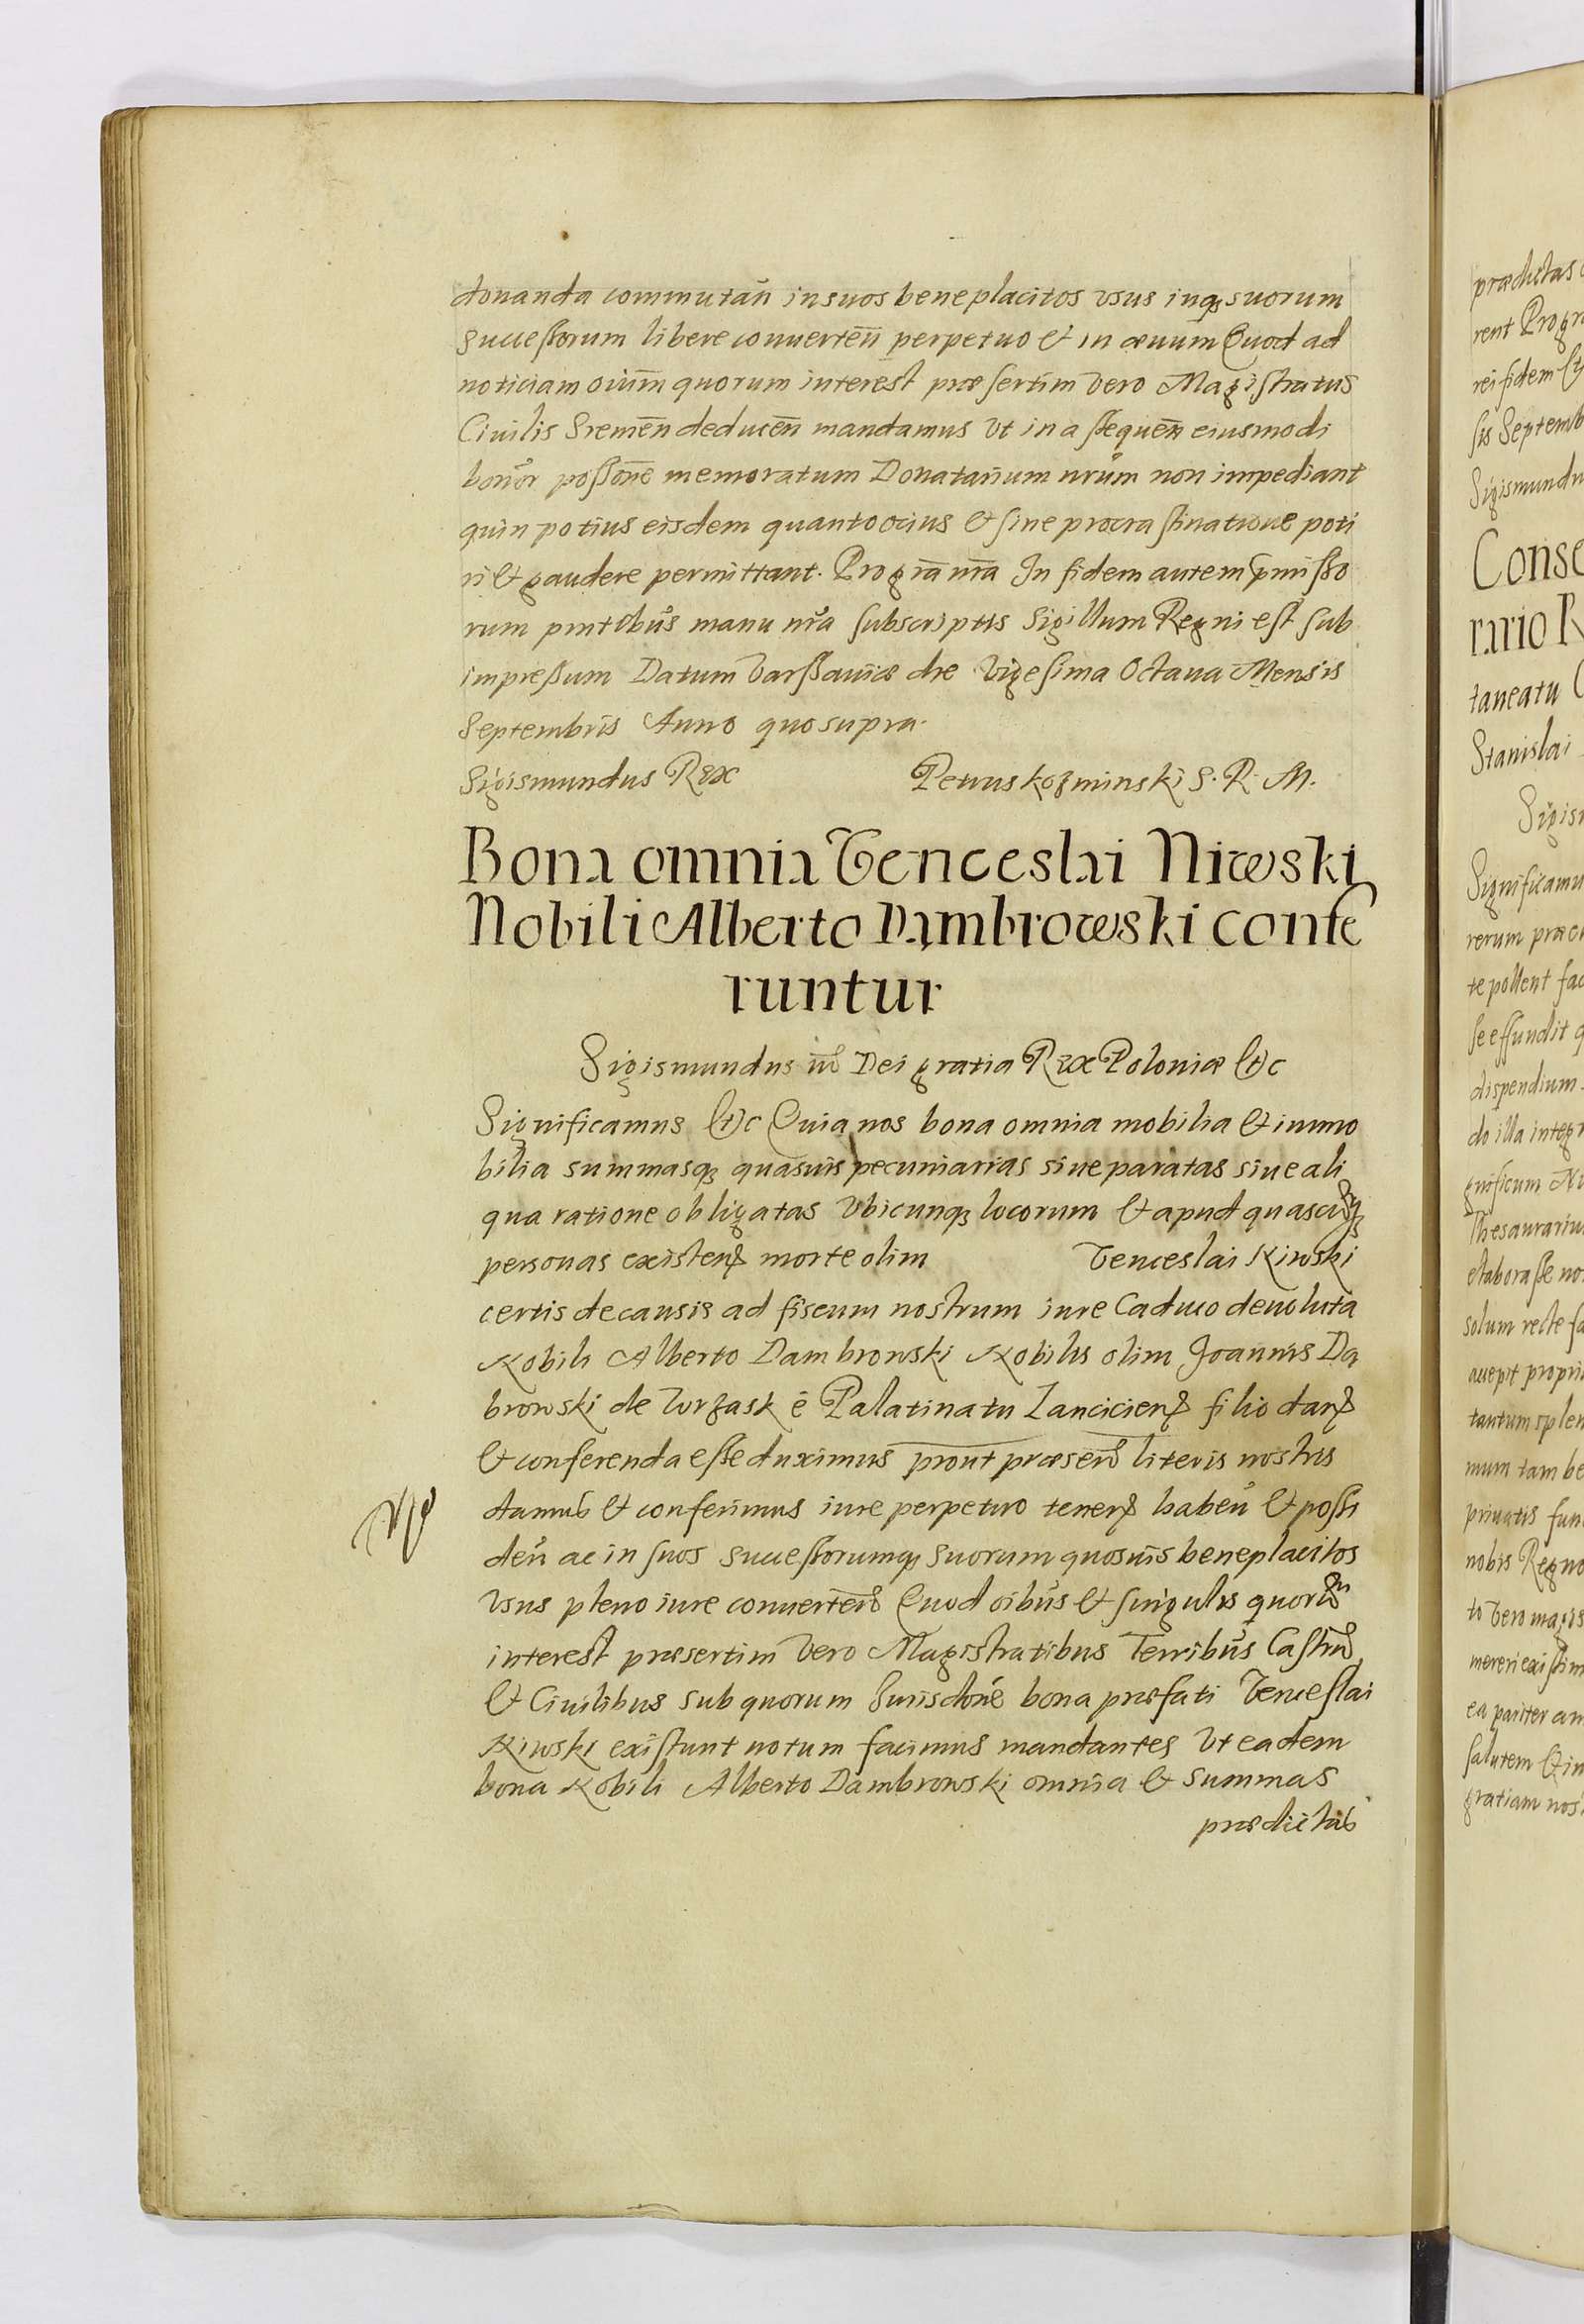 donanda commutan̄ in suos beneplacitos vsus inq₃ suorum
Successorum libere conuerten̄ perpetuo & in æuum Quod ad
noticiam oiūm quorum interest præsertim vero Magistratus
Ciuilis Sremen̄ deducen̄ mandamus vt in assequen̄ eiusmodi
bonor̄ possōne memoratum Donatarium nrūm non impediant
quin potius eisdem quantoocius & sine procrastinatione poti
ri & gaudere permittant. Pro gr̄a nrā In fidem autem p̄misso
rum pn̄tibus manu nrā subscriptis Sigillum Regni est sub
impressum Datum Varssauiæ die Vigesima Octaua Mensis
Septembris Anno quo supra.
Sigismundus Rex Petrus kozminski S. R. M.
Bona omnia Venceslai Niwski
Nobili Alberto Dąmbrowski confe
runtur
Sigismundus iii Dei gratia Rex Poloniæ &c
Significamus &c Quia nos bona omnia mobilia & immo
bilia summasq₃ quasuis pecuniarias siue paratas siue ali
qua ratione obligatas Vbicunq₃ locorum & apud quascunq₃
personas existen̄ morte olim Venceslai Niwski
certis de causis ad fiscum nostrum iure Caduco deuoluta
Nobili Alberto Dambrowski Nobilis olim Joannis Dą
browski de Turzask é Palatinatu Lancicien̄ filio dan̄
& conferenda esse duximus prout præsen̄ literis nostris
damus & conferimus iure perpetuo tenen̄ haben̄ & possi
den̄ ac in suos Successorumq₃ Suorum quosuis beneplacitos
Vsus pleno iure conuerten̄ Quod oībus & singulis quorum
interest præsertim Vero Magistratibus Terribūs Castrn̄
& Ciuilibus Sub quorum Jurisdōne bona præfati Venceslai
Niwski existunt notum facimus mandantes Vt eadem
bona Nobili Alberto Dambrowski omnia & Summas
prædictas
prædictas
rent Progr
rei fidem
sis Septemb
Sigismundu
Conse
rario R
taneatu
Stanislai
Sigis
Significamu
rerum præc
te pollent fac
se effundit q
dispendium
do illa integr
gnificum Ni
Thesaurariu
elaborasse no
solum recte fa
accepit propri
tantum splen
mum tam be
priuatis fun
nobis Regno
to Vero magis
mereri existim
ea pariter am
salutem & in
gratiam nos